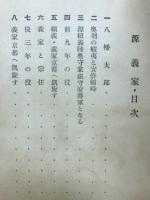 源義家・目次
一 八幡太郎
二 奥羽の蝦夷と安倍頼時
三 源頼義陸奥守兼鎮守府将軍となる
四 前九年の役
五 頼義・義家京都へ凱旋す
六 義家と宗任
七 後三年の役
八 義家京都へ凱旋す